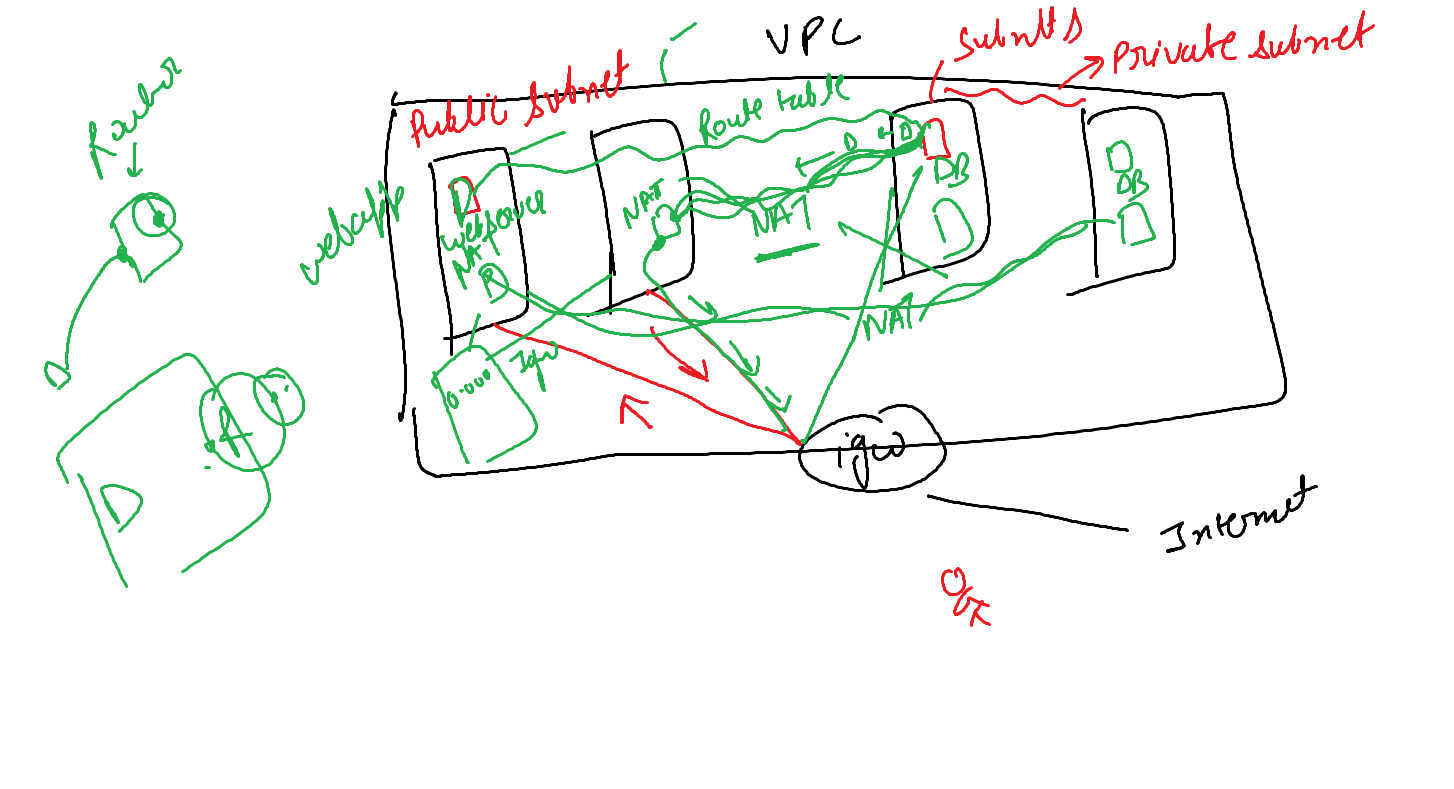 VPC
Subnets
Private subnet
Public Subnet
Route table
Router
webapp
D
webserver
NAT
NAT
NAT
D
D
DB
D
D
DB
NAT
NAT
Igw
0.000
igw
D
D
Internet